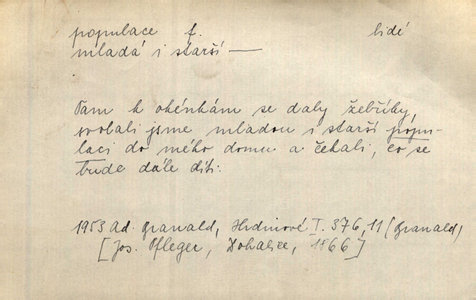 populace f. lidé
mladá i starší —
Tam k okénkám se daly žebříky,
svolali jsme mladou i starší popu-
laci do mého domu a čekali, co se
bude dále díti.
1953 Ad. Granald, Hrdinové I. 376, 11 (Granald)
[Jos. Pfleger, Dohalice, 1866]